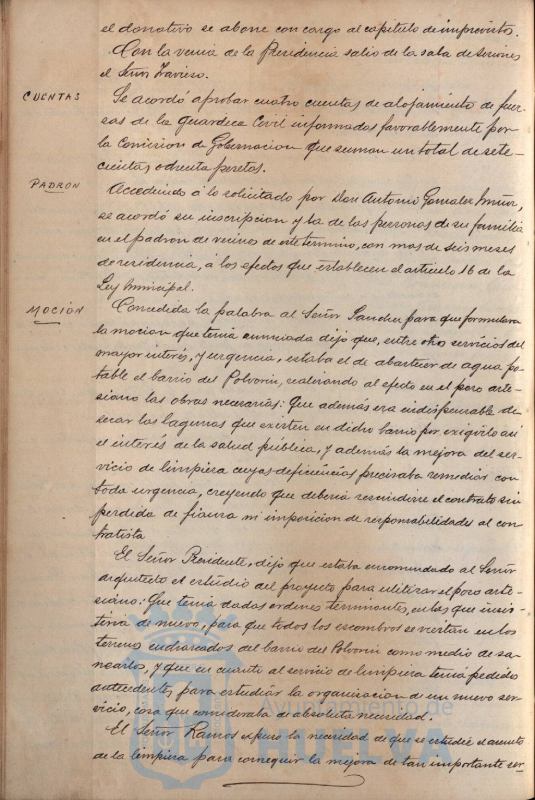 el donativo se abone con cargo al capítulo de imprevistos.
Con la venia de la Presidencia salió de la sala de sesiones
el Señor Tavieso.
CUENTAS
Se acordó aprobar cuatro cuentas de alojamiento de fuer-
zas de la guardia Civil informadas favorablemente por
la Comision de Gobernacion que suman un total de sete-
cientas ochenta pesetas.
PADRON
Accediendo á lo solicitado por Don Antonio Gonzalez Muñoz,
se acordó su inscripcion y la de las personas de su familia
en el padron de vecinos de este término, con mas de seis meses
de residencia, á los efectos que establece el artículo 16 de la
Ley Municipal.
MOCIÓN
Concedida la palabra al Señor Sanchez para que formulara
la mocion que tenia anunciada dijo que, entre otros servicios del
mayor interés, y urgencia, estaba el de abastecer de agua po-
table el barrio del Polvorin, realizando al efecto en el pozo arte-
siano las obras necesarias: Que además era indispensable de-
secar las lagunas que existen en dicho barrio por exigirlo así
el interés de la salud pública, y además la mejora del ser-
vicio de limpieza cuyas deficiencias precisaba remediar con
toda urgencia, creyendo que deberia rescindirse el contrato sin
perdida de fianza ni imposicion de responsabilidades al con-
tratista
El Señor Presidente, dijo que estaba encomendado al Señor
arquitecto el estudio del proyecto para utilizar el pozo arte-
siano: Que tenia dadas ordenes terminantes, en las que insis-
tiria de nuevo, para que todos los escombros se viertan en los
terrenos encharcados del barrio del Polvorin como medio de sa-
nearlos, y que en cuanto al servicio de limpieza tenia pedido
antecedentes para estudiar la organizacion de un nuevo ser-
vicio, cosa que consideraba de absoluta necesidad.
El Señor Ramos expuso la necesidad de que se estudie el asunto
de la limpieza para conseguir la mejora de tan importante ser
Ayuntamiento de
HUELVA